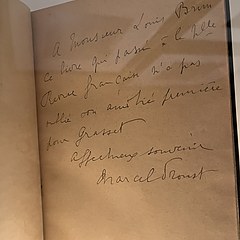 A Monsieur Louis Brun
ce livre qui passé à la
Revue française n'a pas
oublié son amitié première
pour Grasset
affectueux souvenir
Marcel Proust